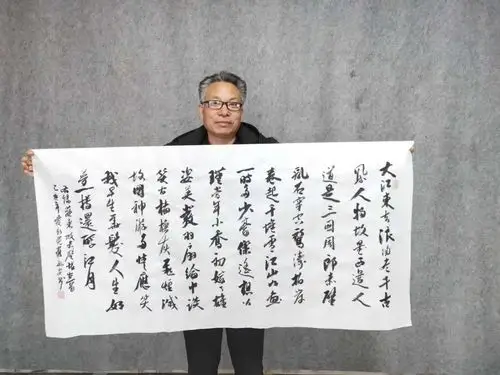 大江東去浪淘尽千古
風人物故垒西边人
道是三国周郎赤壁
乱石穿空驚涛拍岸
卷起千堆雪江山如画
一时多少豪傑遥想公
瑾當年小喬初嫁了雄
姿英發羽扇綸巾谈
笑间樯櫓灰飛烟滅
故国神游多情應笑
我早生華髮人生如
夢一樽還酹江月
蘇東坡